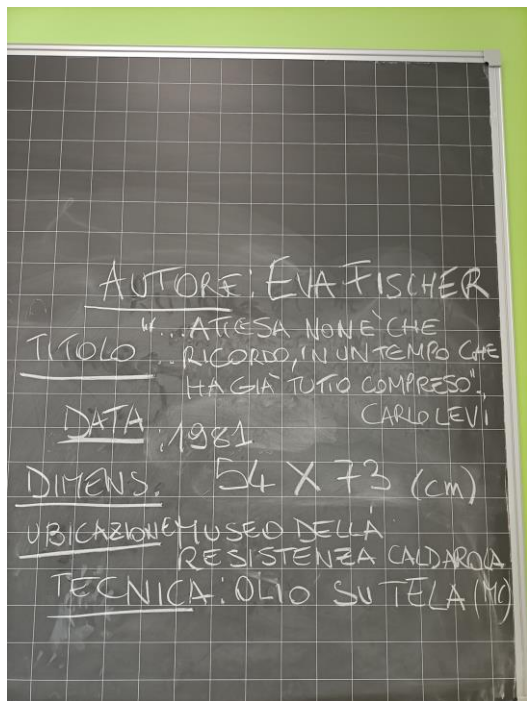 AUTORE: EVA FISCHER
TITOLO "...ATTESA NON È CHE
RICORDO, IN UN TEMPO CHE
HA GIÀ TUTTO COMPRESO",
CARLO LEVI
DATA: 1981
DIMENS. 54 X 73 (cm)
UBICAZIONE MUSEO DELLA
RESISTENZA CALDAROLA
TECNICA: OLIO SU TELA (MC)